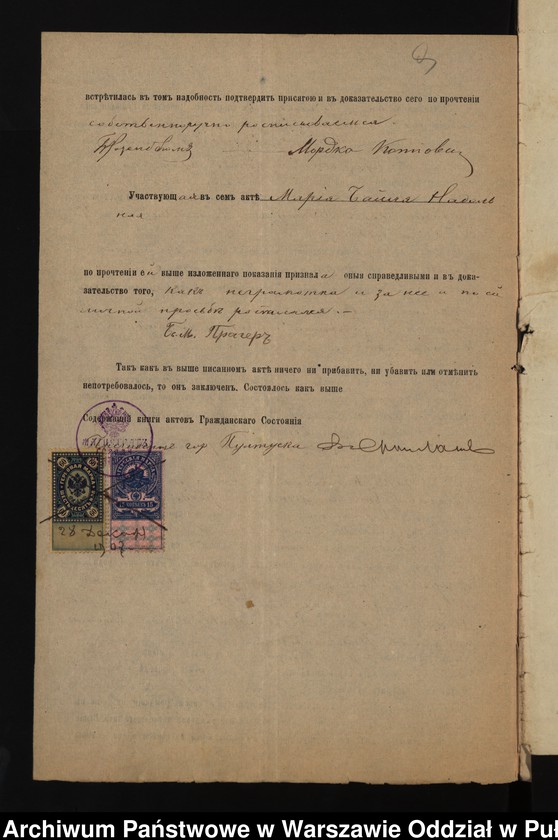 встрѣтилась въ томъ надобность подтвердить присягою и въ доказательство сего по прочтеніи
собственноручно росписываемся.
Мордка
Участвующая въ семъ актѣ Марія
по прочтеніи ей выше изложеннаго показанія признала оныя справедливыми и въ дока-
зательство того, какъ неграмотна и за нее и по ей
личной просьбѣ
Прагеръ
Такъ какъ въ выше писанномъ актѣ ничего ни прибавить, ни убавить или отмѣнить
непотребовалось, то онъ заключенъ. Состоялось какъ выше
Содержащій книги актовъ Гражданскаго Состоянія
гор Пултуска
60 60
15 15
28
Archiwum Państwowe w Warszawie Oddział w Puł